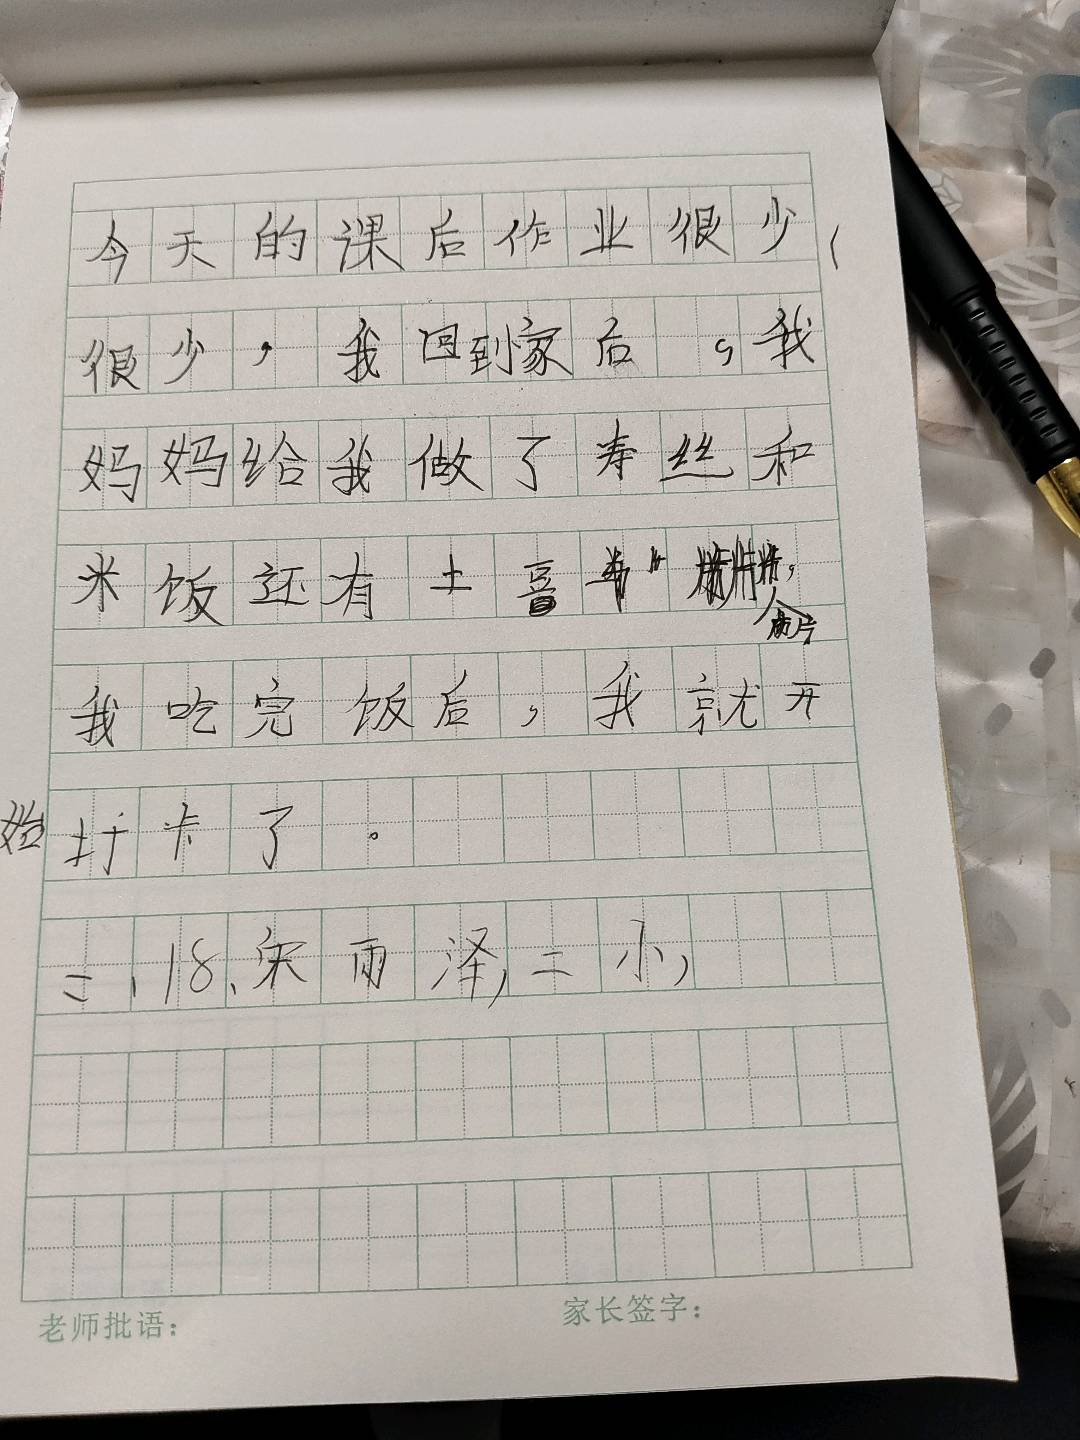 今天的课后作业很少
很少，我回到家后，我
妈妈给我做了寿丝和
米饭还有土
我吃完饭后，我就开
始打卡了。
二、18、宋雨泽，二小，
老师批语：
家长签字：